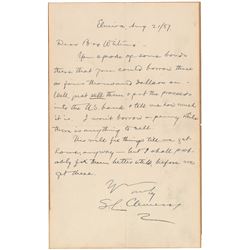 Elmira, Aug. 21/87
Dear Bro Whitmo:
You spoke of some bonds
there that you could borrow three
or four thousand dollars on.
Well, just sell them & put the proceeds
into the US bank & tell me how much
it is. I won't borrow a penny while
there is anything to sell.
This will fix things till we get
home, anyway — but I shall prob-
ably fix them better still, before we
get there.
Yrs
truly
SL Clemens